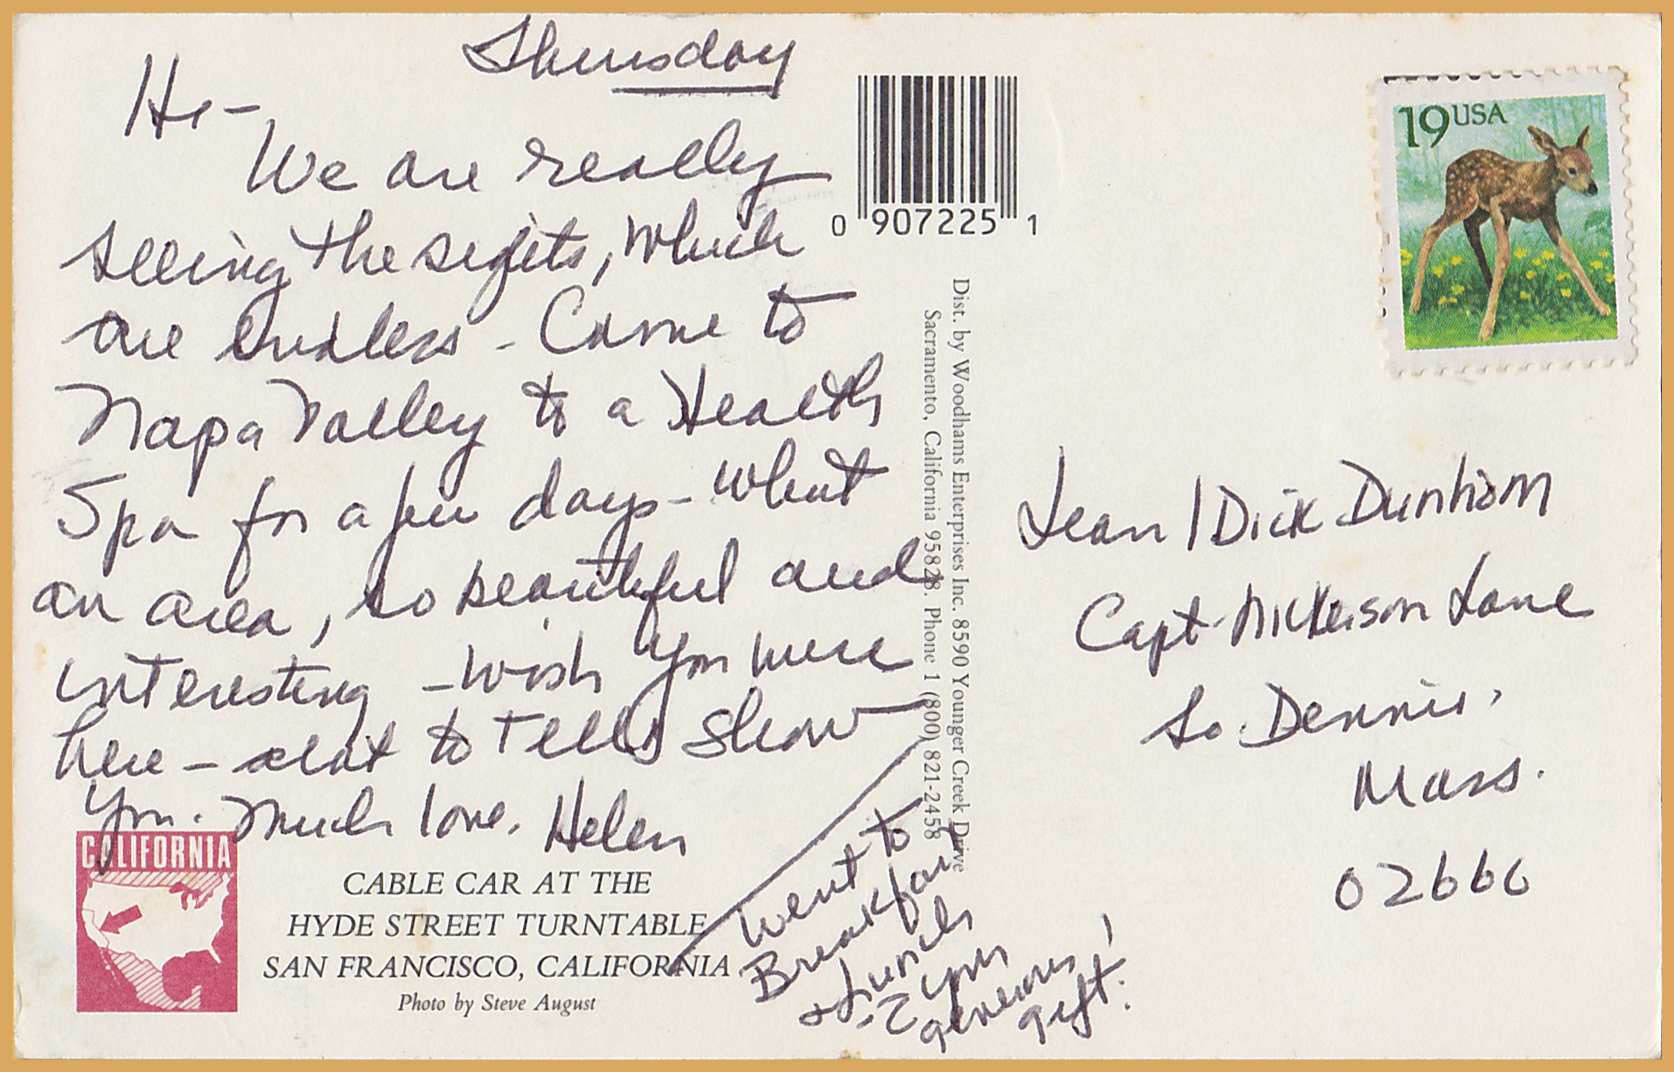 Thursday
Hi-
We are really
seeing the sights, which
are endless - Came to
Napa Valley to a Health
Spa for a few days - what
an area, so beautiful and
interesting - wish you were
here - alot to tell & show
you. Much love. Helen
went to
Breakfast
& Lunch
your
generous
gift!
CALIFORNIA
CABLE CAR AT THE
HYDE STREET TURNTABLE
SAN FRANCISCO, CALIFORNIA
Photo by Steve August
0 907225 1
Dist. by Woodhams Enterprises Inc. 8590 Younger Creek Drive
Sacramento, California 95828. Phone 1 (800) 821-2458
19 USA
Jean / Dick Dunham
Capt. Nickerson Lane
So. Dennis,
Mass.
02660